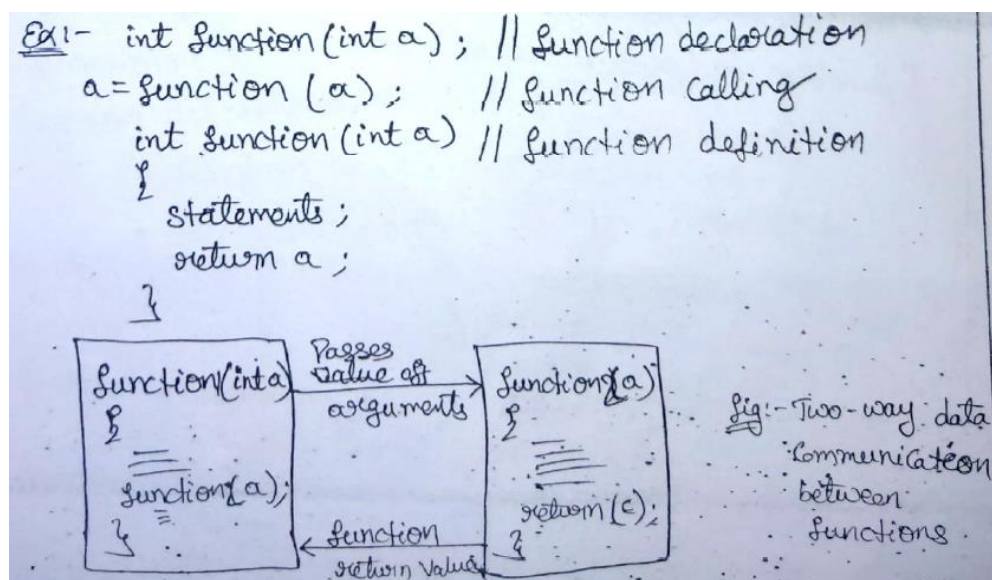 Ex:- int function (int a) ; // function declaration
a = function (a) ; // function calling
int function (int a) // function definition
{
statements ;
return a ;
}
function(int a)
{
function(a);
}
Passes
value of
arguments
function(a)
{
return(c);
}
function
return value
fig:- Two-way data
Communication
between
functions.